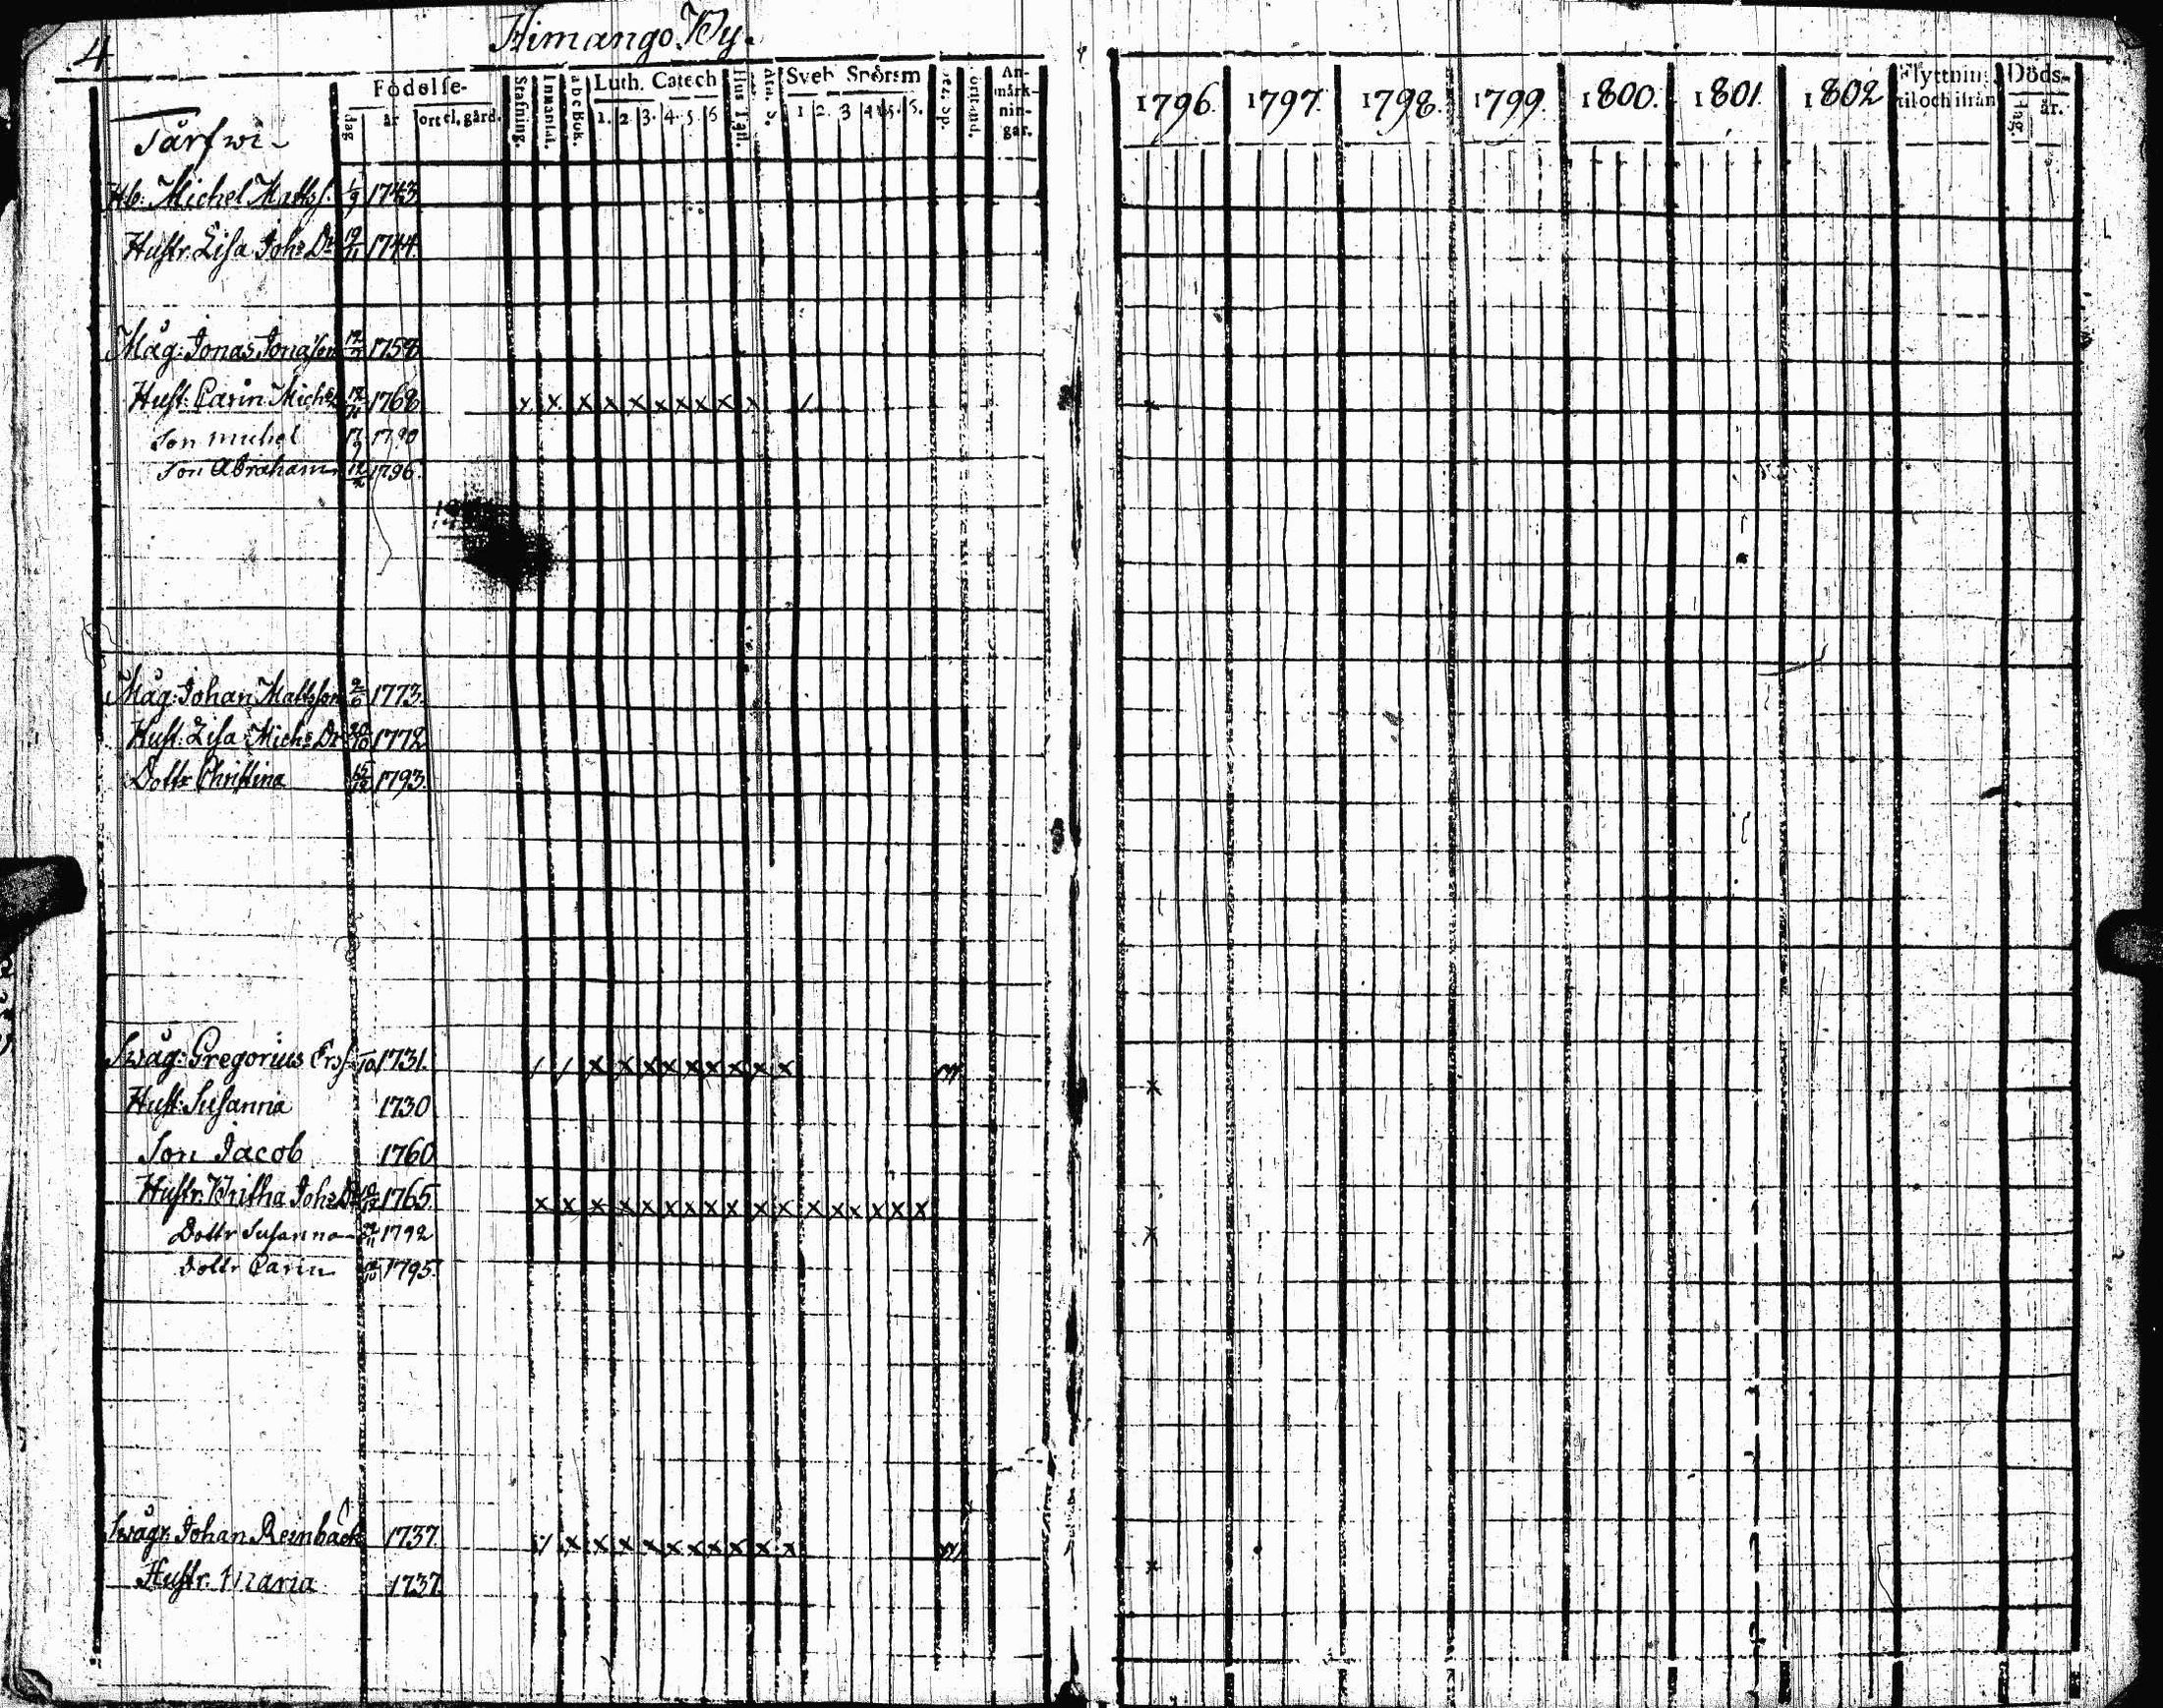 4.
Himango By.
Födelse-
dag
år
ort el. gård.
Stafning.
Innantil.
abcBok.
Luth. Catech
1. 2. 3. 4. 5. 6
Hus Tafl.
Ath. S.
Sveb Spörsm
1 2. 3 4 5. 6.
Bez. Sp.
Förstånd.
An-
märk-
nin-
gar.
1796. 1797. 1798. 1799. 1800. 1801. 1802
Flyttning
til och ifrån
Döds-
dag.
år.
Särfwi
Hb: Michel Mattss. 1/9 1743
Hustr. Lisa Johs Dr 19/11 1744.
Måg: Jonas Jonasson 1758
Hust: Carin Michs 1768
Son Michel 17/9 1790
Son Abraham 12/2 1796.
Måg: Johan Mattsson 2/6 1773.
Hust. Lisa Michs Dr 20/10 1772
Dottr Christina 15/12 1793.
Swåg: Gregorius Erss. 1731.
Hust: Susanna 1730
Son Jacob 1760
Hustr. Britha Johs Dr 1765.
Dottr Susanna 1792
Dottr Carin 1795.
Swågr. Johan Reinback 1737.
Hustr. Maria 1737.